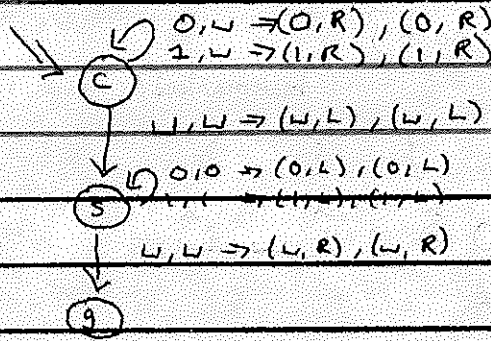 0,⊔ → (0,R), (0,R)
1,⊔ → (1,R), (1,R)
C
⊔,⊔ → (⊔,L), (⊔,L)
0,0 → (0,L), (0,L)
S
1,1 → (1,L), (1,L)
⊔,⊔ → (⊔,R), (⊔,R)
9